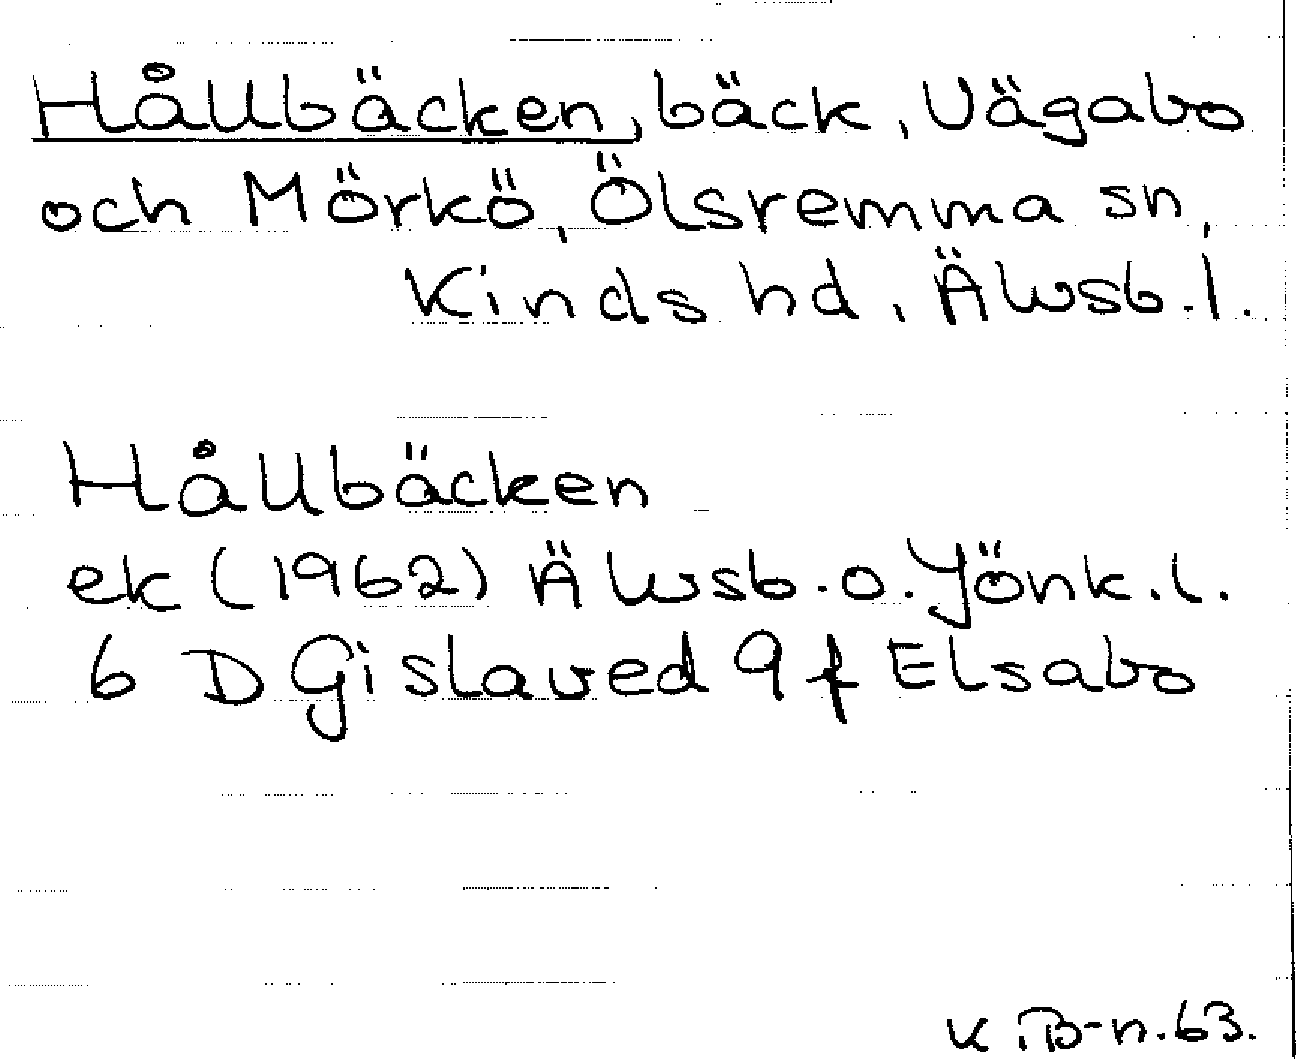 Hållbäcken, bäck, Vägabo
och Mörkö, Ölsremma sn,
Kinds hd, Älvsb.l.
Hållbäcken
ek (1962) Älvsb.o.Jönk.l.
6 D Gislaved 9 f Elsabo
K.B-n.63.